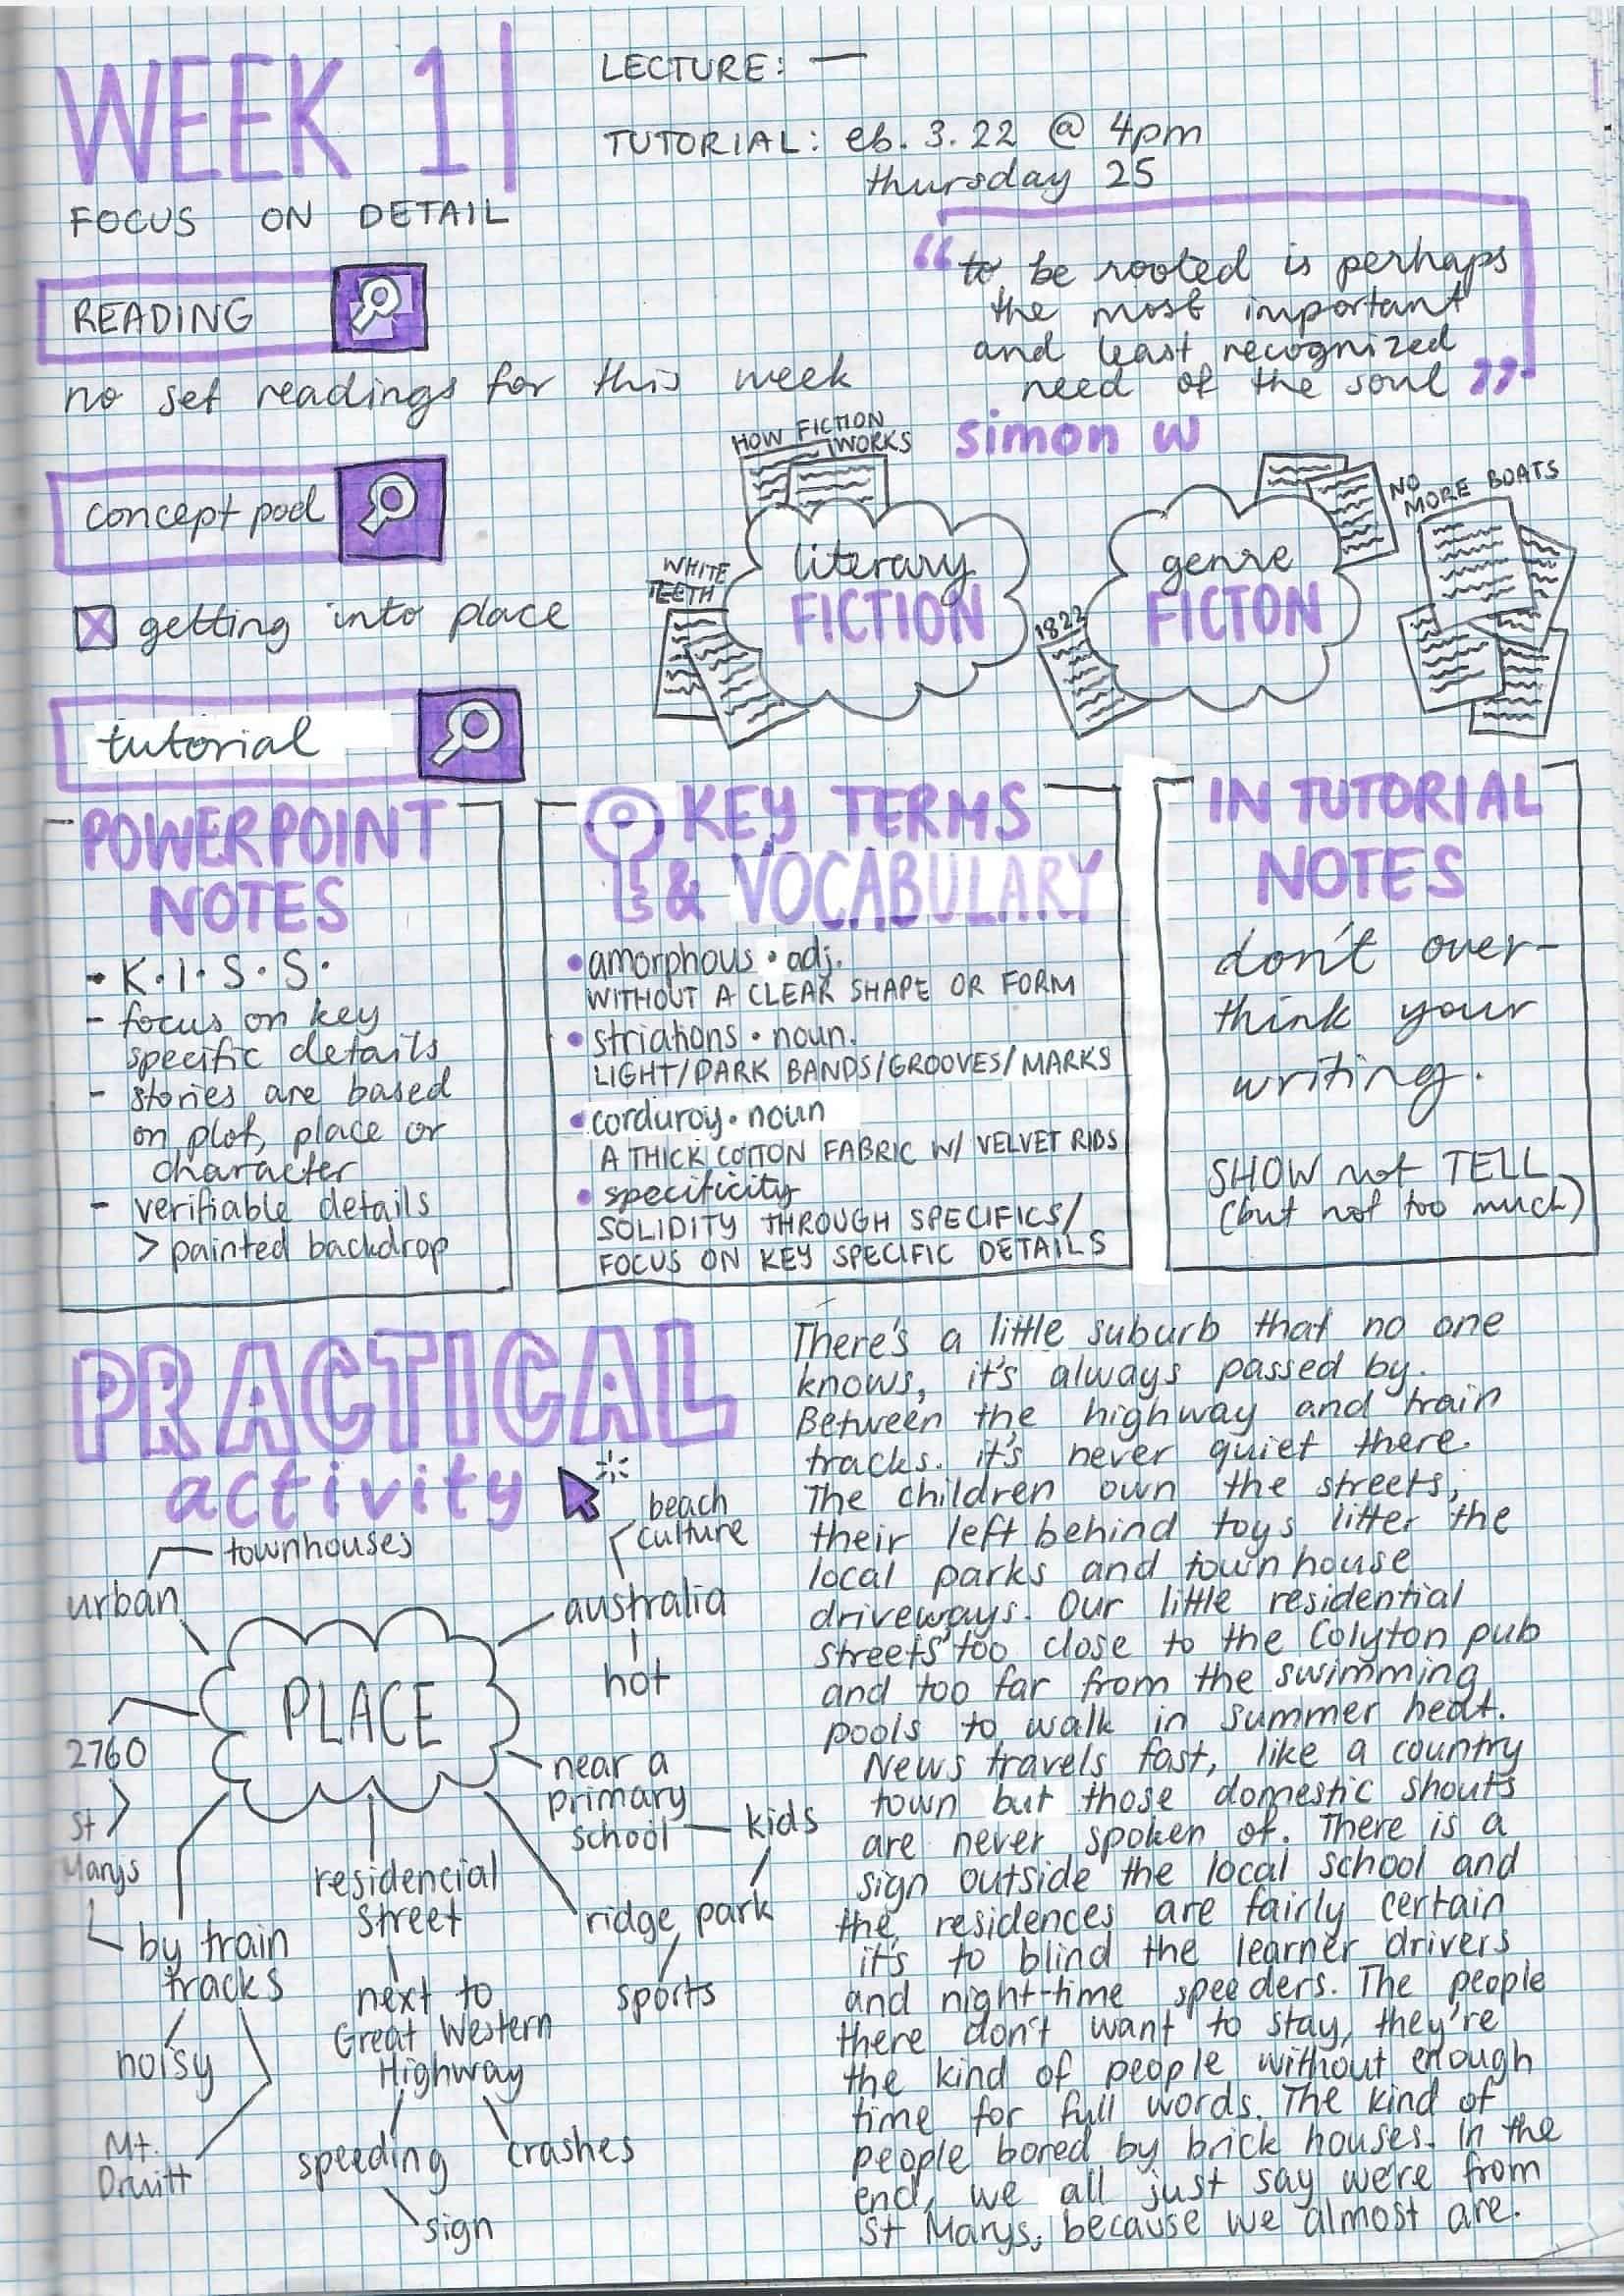 WEEK 1
LECTURE: —
TUTORIAL: eb. 3. 22 @ 4pm
thursday 25
FOCUS ON DETAIL
READING
no set readings for this week
“to be rooted is perhaps
the most important
and least recognized
need of the soul”
simon w
concept pod
getting into place
HOW FICTION
WORKS
WHITE
TEETH
literary
FICTION
1822
genre
FICTON
NO
MORE BOATS
tutorial
POWERPOINT
NOTES
- K.I.S.S.
- focus on key
specific details
- stories are based
on plot, place or
character
- verifiable details
> painted backdrop
KEY TERMS
& VOCABULARY
• amorphous • adj.
WITHOUT A CLEAR SHAPE OR FORM
• striations • noun.
LIGHT/DARK BANDS/GROOVES/MARKS
• corduroy • noun
A THICK COTTON FABRIC W/ VELVET RIBS
• specificity
SOLIDITY THROUGH SPECIFICS/
FOCUS ON KEY SPECIFIC DETAILS
IN TUTORIAL
NOTES
don't over-
think your
writing.
SHOW not TELL
(but not too much)
PRACTICAL
activity
townhouses
urban
beach
culture
australia
hot
PLACE
2760
St
Marys
near a
primary
school
kids
residencial
street
ridge park
by train
tracks
sports
next to
Great Western
Highway
noisy
Mt.
Druitt
speeding
crashes
sign
There's a little suburb that no one
knows, it's always passed by.
Between the highway and train
tracks. it's never quiet there.
The children own the streets,
their left behind toys litter the
local parks and townhouse
driveways. Our little residential
streets too close to the Colyton pub
and too far from the swimming
pools to walk in summer heat.
News travels fast, like a country
town but those domestic shouts
are never spoken of. There is a
sign outside the local school and
the residences are fairly certain
it's to blind the learner drivers
and night-time speeders. The people
there don't want to stay, they're
the kind of people without enough
time for full words. The kind of
people bored by brick houses. In the
end, we all just say we're from
St Marys, because we almost are.